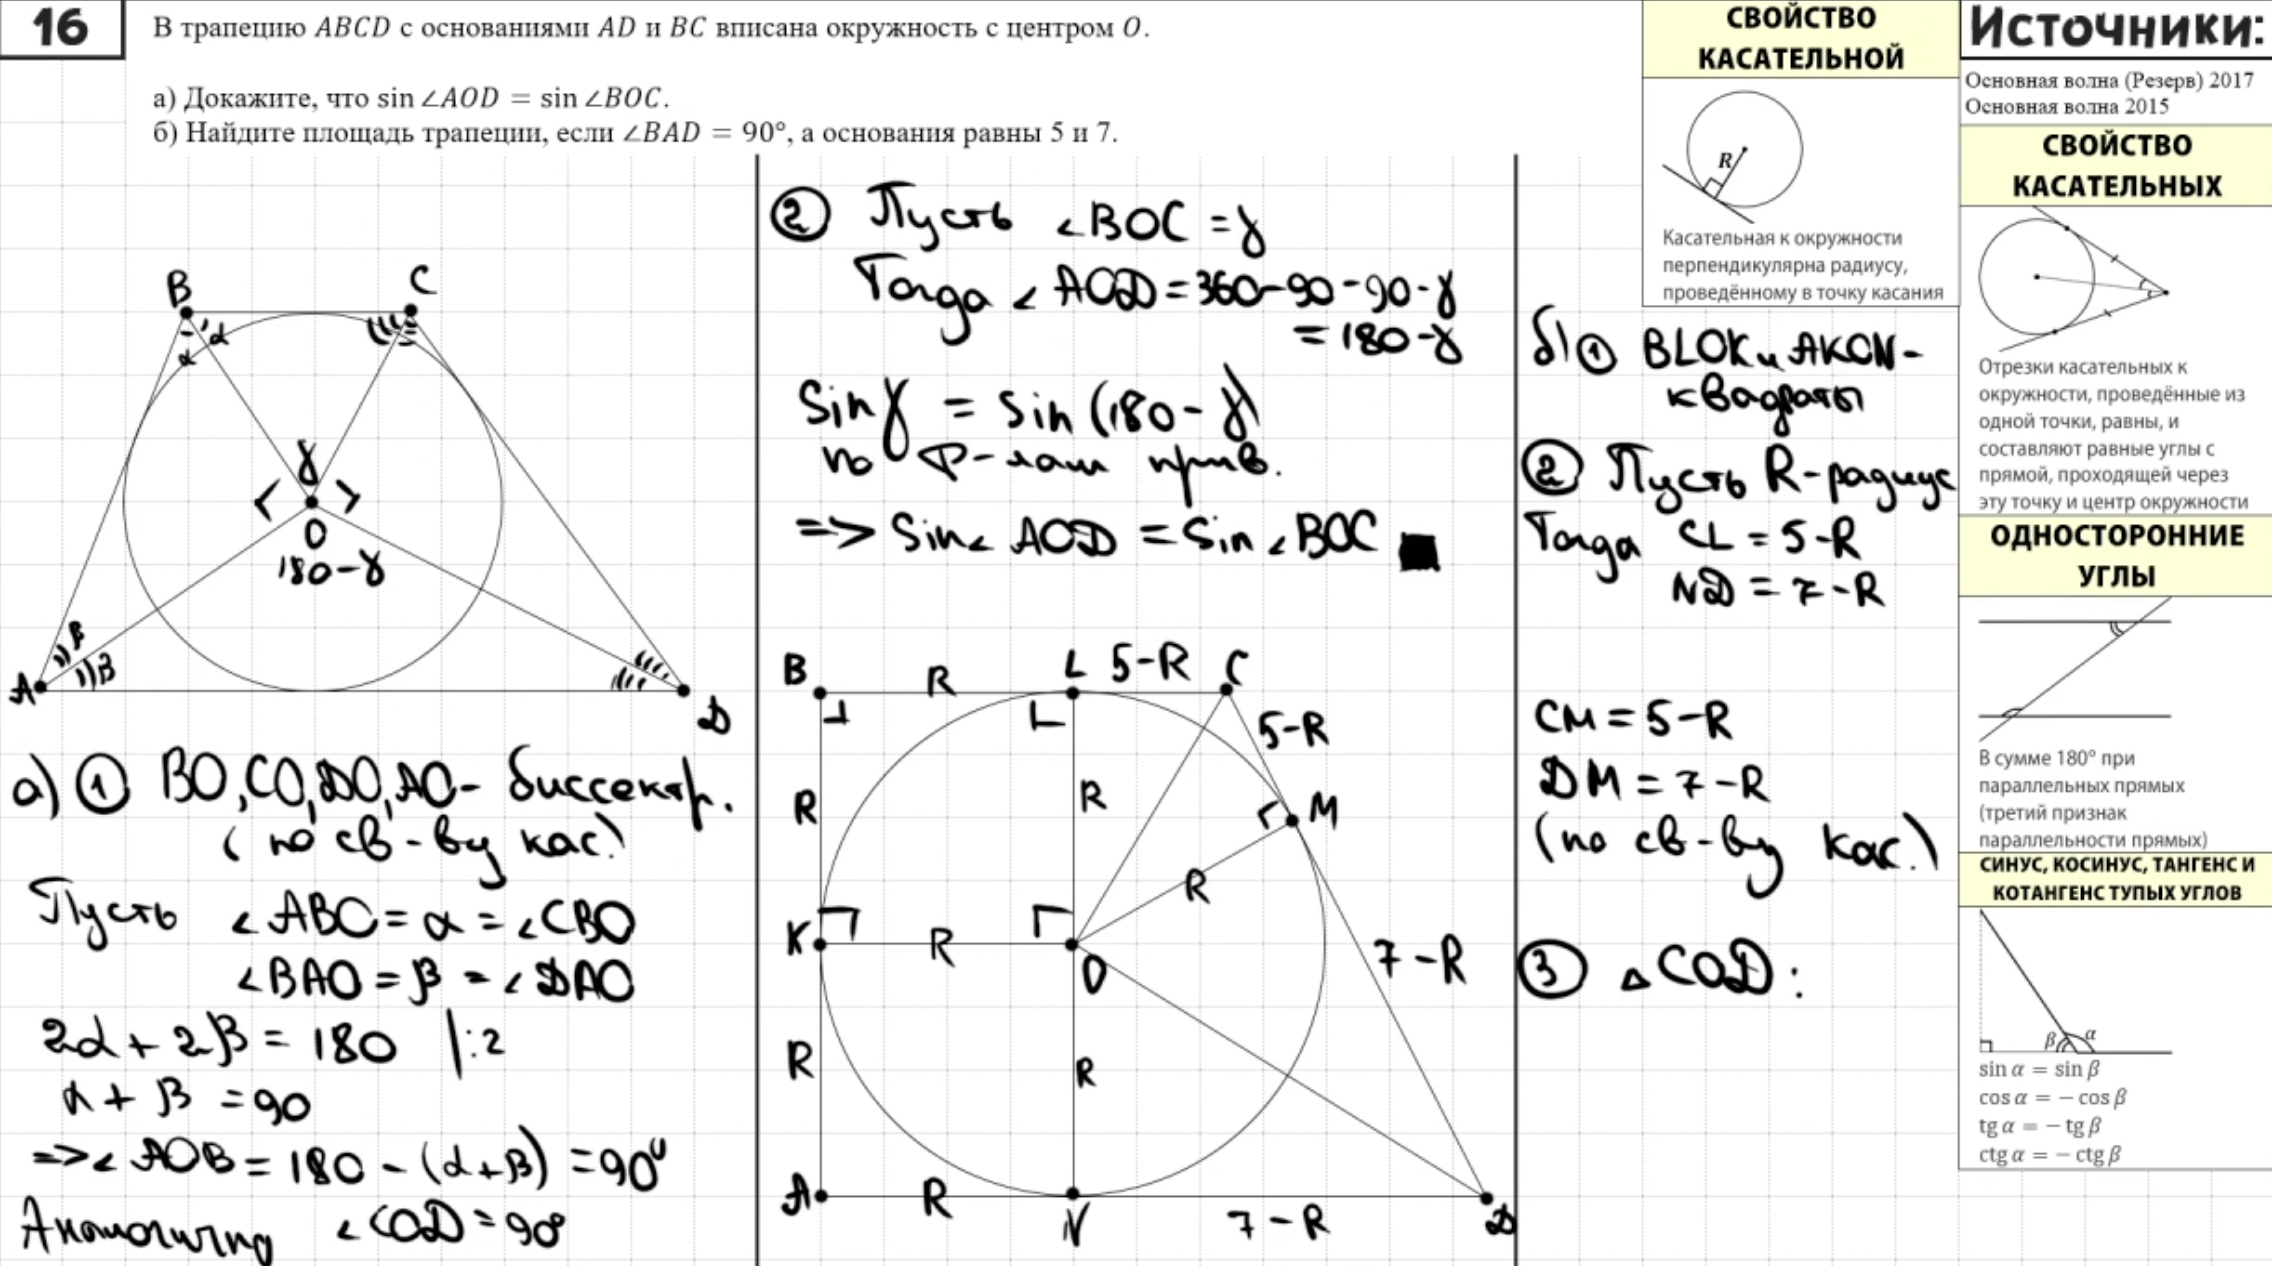 16
В трапецию ABCD с основаниями AD и BC вписана окружность с центром O.
а) Докажите, что sin ∠AOD = sin ∠BOC.
б) Найдите площадь трапеции, если ∠BAD = 90°, а основания равны 5 и 7.
B
C
α
α
γ
O
180-γ
β
β
A
D
а) ① BO, CO, DO, AO - биссектр.
(по св-ву кас.)
Пусть ∠ABO = α = ∠CBO
∠BAO = β = ∠DAO
2α + 2β = 180 |:2
α + β = 90
=> ∠AOB = 180 - (α+β) = 90°
Аналогично ∠COD = 90°
② Пусть ∠BOC = γ
Тогда ∠AOD = 360-90-90-γ
= 180-γ
Sin γ = Sin (180-γ)
по ф-лам прив.
=> Sin∠AOD = Sin∠BOC
B
R
L
5-R
C
5-R
R
R
M
R
K
R
O
7-R
R
R
A
R
N
7-R
D
б) ① BLOK и AKON -
квадраты
② Пусть R-радиус
Тогда CL = 5-R
ND = 7-R
CM = 5-R
DM = 7-R
(по св-ву кас.)
③ △COD:
СВОЙСТВО
КАСАТЕЛЬНОЙ
R
Касательная к окружности
перпендикулярна радиусу,
проведённому в точку касания
Источники:
Основная волна (Резерв) 2017
Основная волна 2015
СВОЙСТВО
КАСАТЕЛЬНЫХ
Отрезки касательных к
окружности, проведённые из
одной точки, равны, и
составляют равные углы с
прямой, проходящей через
эту точку и центр окружности
ОДНОСТОРОННИЕ
УГЛЫ
В сумме 180° при
параллельных прямых
(третий признак
параллельности прямых)
СИНУС, КОСИНУС, ТАНГЕНС И
КОТАНГЕНС ТУПЫХ УГЛОВ
β
α
sin α = sin β
cos α = − cos β
tg α = − tg β
ctg α = − ctg β